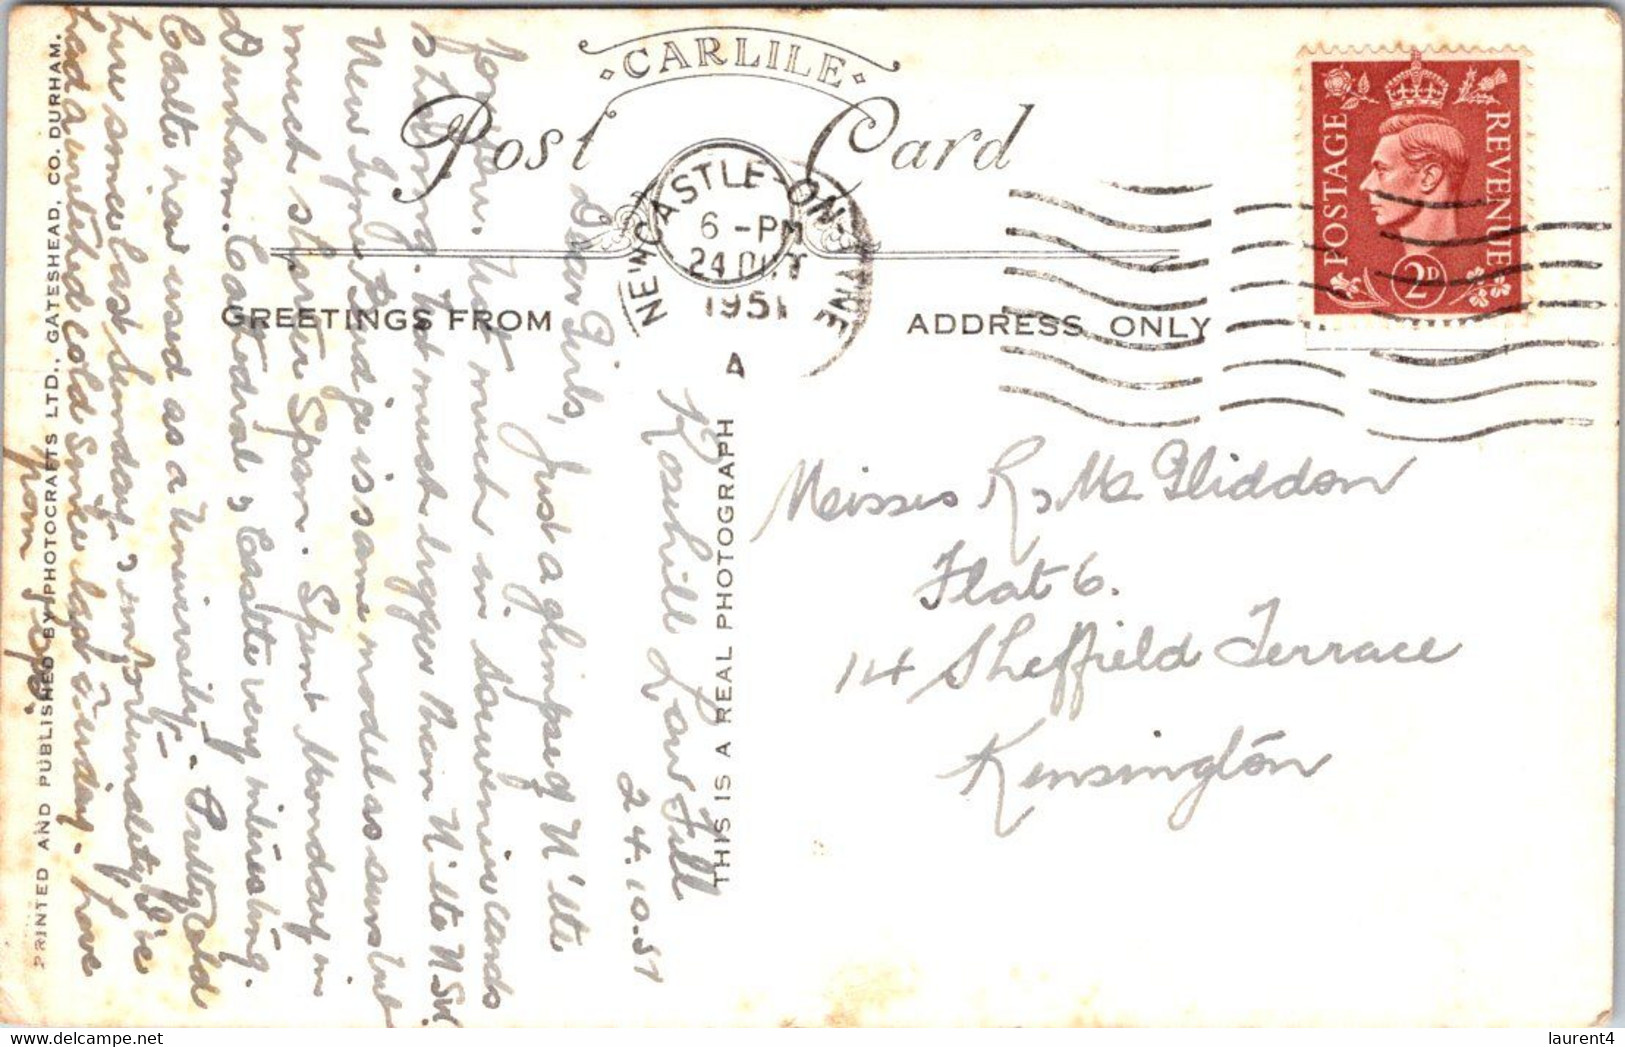 CARLILE
Post Card
GREETINGS FROM
ADDRESS ONLY
NEWCASTLE-ON-TYNE
6 - PM
24 OCT
1951
A
POSTAGE REVENUE
2D
Misses R & M Gliddon
Flat 6.
14 Sheffield Terrace
Kensington
THIS IS A REAL PHOTOGRAPH
PRINTED AND PUBLISHED BY PHOTOCRAFTS LTD., GATESHEAD, CO. DURHAM.
Low Fell
24.10.51
Dear Girls,
Just a glimpse of N'tle
for you. Not much in souvenir cards
is stirring. Not much bigger than N'tle NSW
New Tyne Bridge is same model as ours but
much shorter Span. Spent Monday in
Durham. Cathedral & Castle very interesting.
Castle now used as a University. Pretty cold
here since last Sunday & unfortunately I've
had a wretched cold since last Sunday. Love
from
laurent4